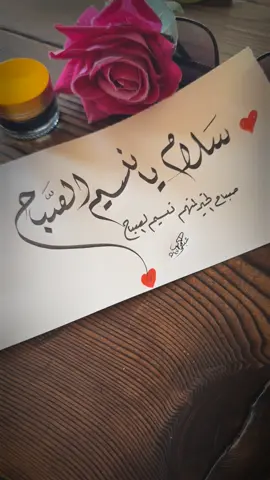 سَلام يا نسيم الصَّباح
صباح الخير لنهم نسيم الصباح